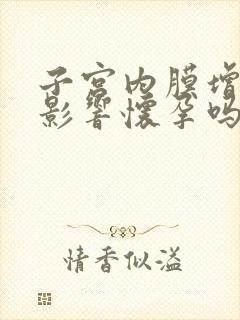 子宫内膜增
影響懷孕吗
情香似溢